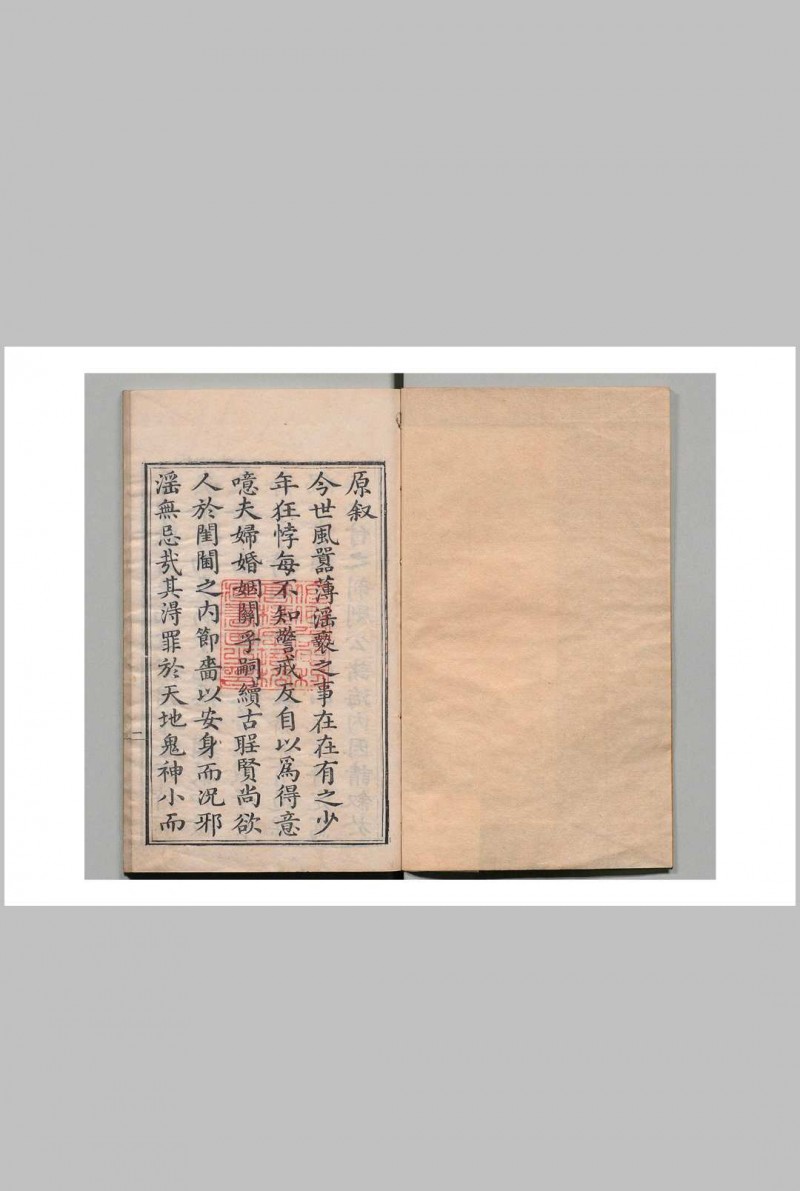 原叙
今世風嚚薄淫褻之事在在有之少
年狂悖每不知警戒反自以爲得意
噫夫婦婚姻關乎嗣續古聖賢尚欲
人於閨閫之内節嗇以安身而况邪
淫無忌㢤其淂罪於天地鬼神小而
二